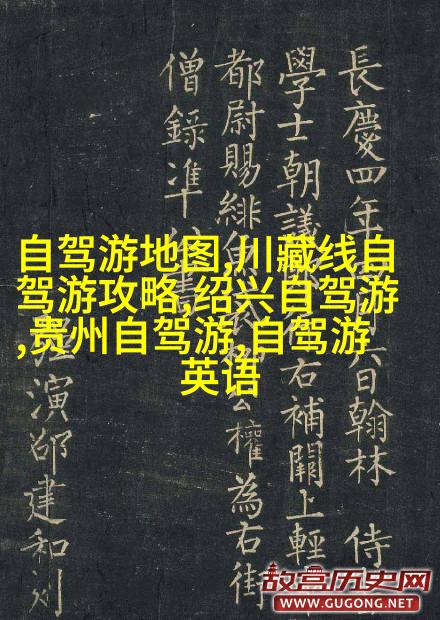 自驾游地图,川藏线自
驾游攻略,绍兴自驾游
,贵州自驾游,自驾游
英语
長慶四年 六日翰林 侍
學士朝議 右補闕上輕
都尉賜緋魚 公權為右街
僧錄准
演邵建和刻
故宫历史网
WWW.GUGONG.NET